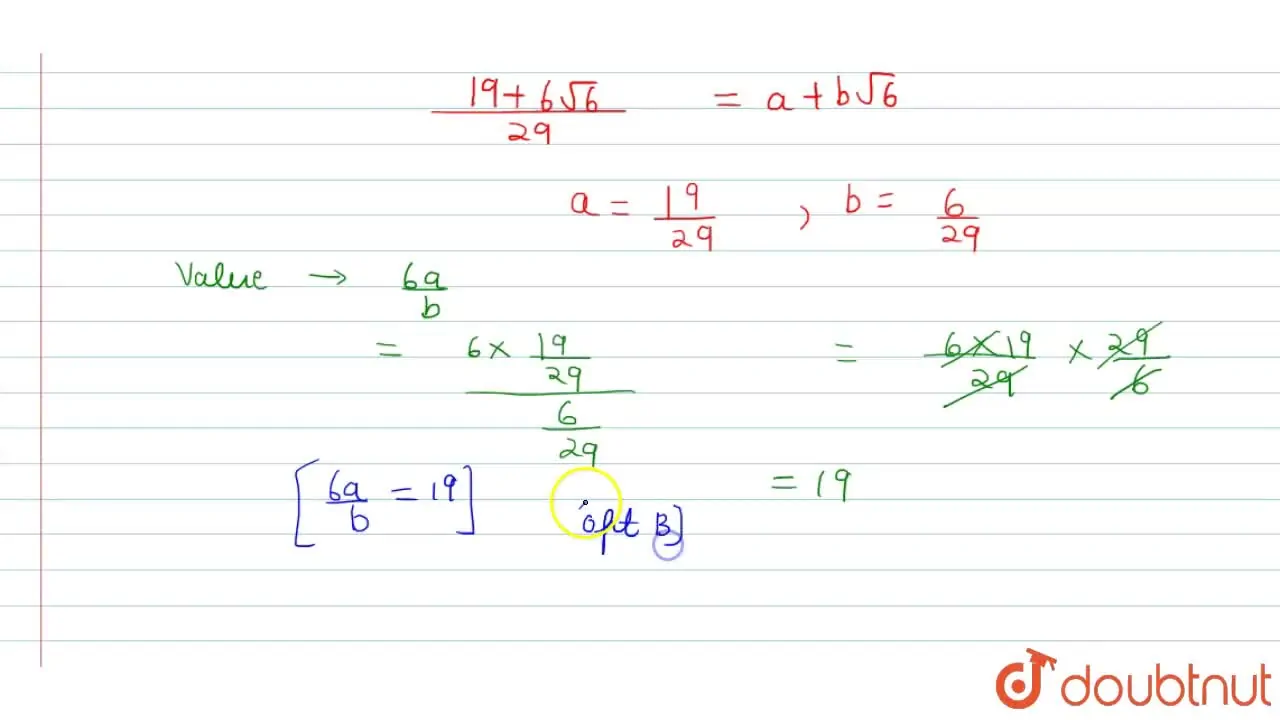 19+6√6/29 = a+b√6
a = 19/29 , b = 6/29
Value → 6a/b
= 6 × 19/29 / 6/29 = 6×19/29 × 29/6
[6a/b = 19] opt B] = 19
doubtnut